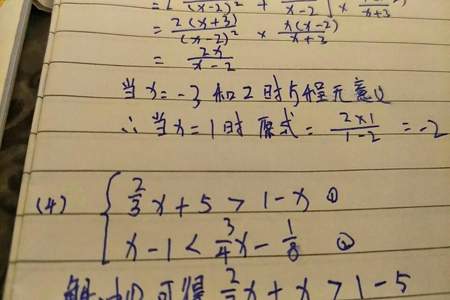 (x-2)² + ] × x+3
= 2(x+3)/(x-2)² × x(x-2)/x+3
= 2x/x-2
当x=-3和2时方程无意义
∴当x=1时 原式=2×1/1-2=-2
(4) { 2/3x+5>1-x ①
x-1<3/4x-1/8 ②
解:由①可得 2/3x+x>1-5